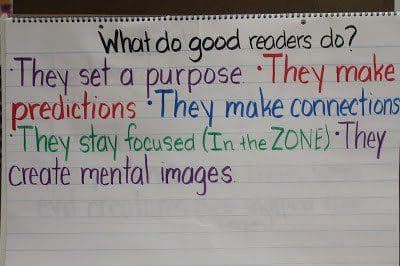 What do good readers do?
·They set a purpose. ·They make
predictions ·They make connections
·They stay focused (In the ZONE) ·They
create mental images.